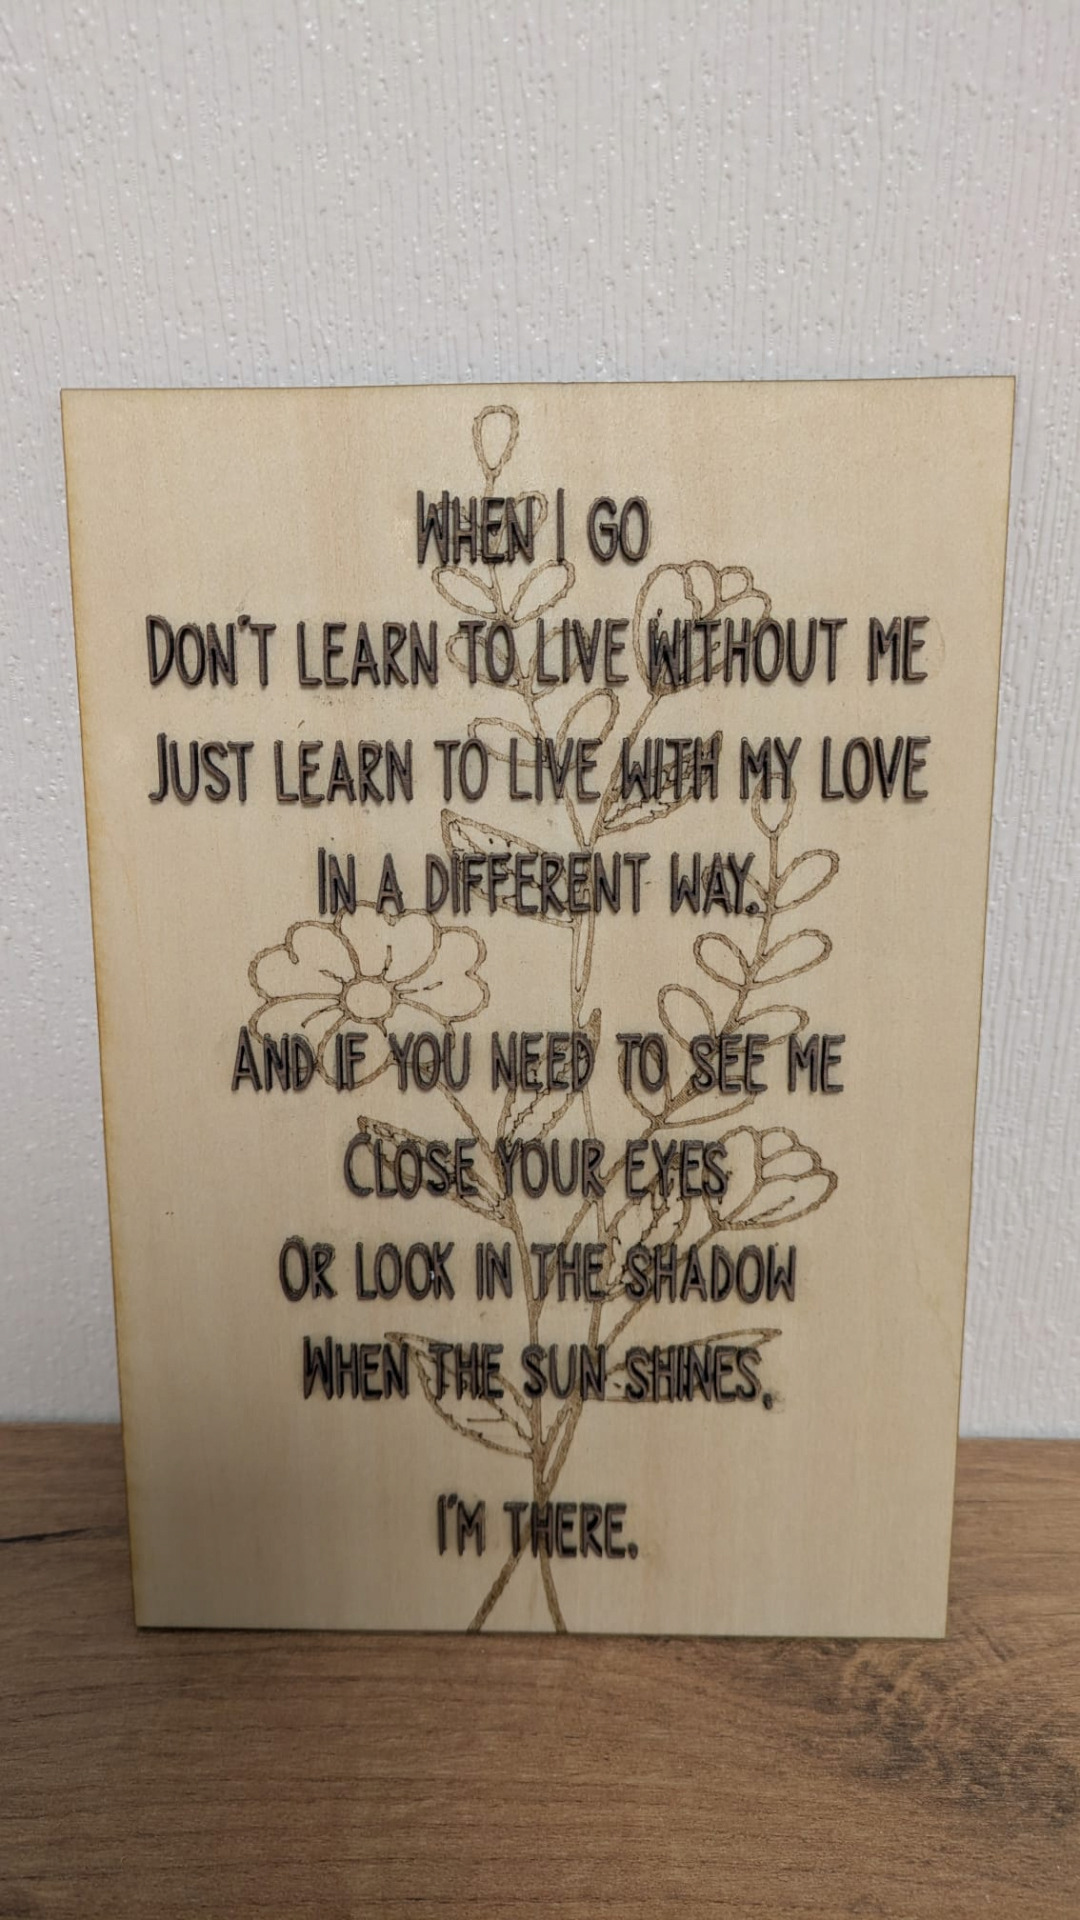 When I go
Don't learn to live without me
Just learn to live with my love
In a different way.
And if you need to see me
Close your eyes
Or look in the shadow
When the sun shines.
I'm there.